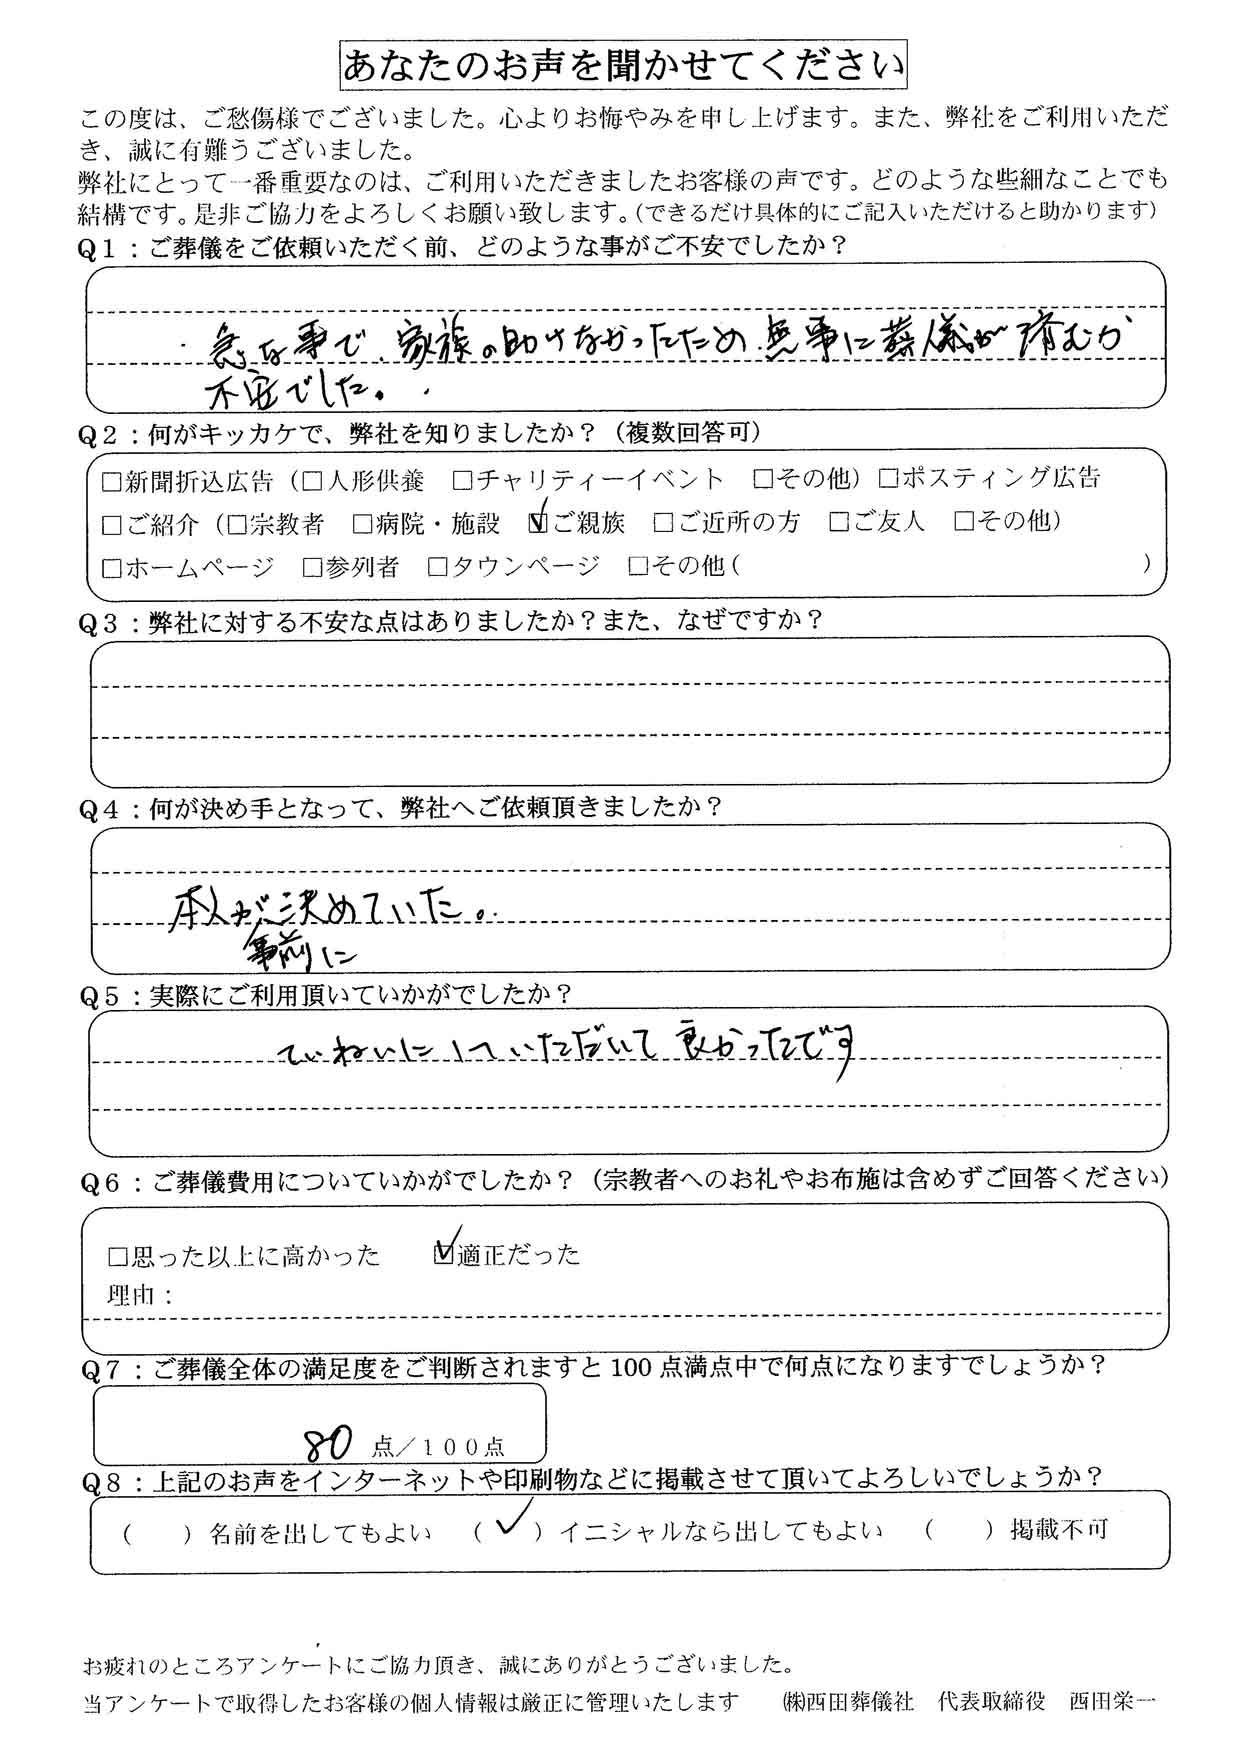 あなたのお声を聞かせてください
この度は、ご愁傷様でございました。心よりお悔やみを申し上げます。また、弊社をご利用いただ
き、誠に有難うございました。
弊社にとって一番重要なのは、ご利用いただきましたお客様の声です。どのような些細なことでも
結構です。是非ご協力をよろしくお願い致します。(できるだけ具体的にご記入いただけると助かります)
Q1：ご葬儀をご依頼いただく前、どのような事がご不安でしたか？
急な事で、家族の助けなかったため、無事に葬儀が済むか
不安でした。
Q2：何がキッカケで、弊社を知りましたか？（複数回答可）
□新聞折込広告（□人形供養　□チャリティーイベント　□その他）□ポスティング広告
□ご紹介（□宗教者　□病院・施設　☑ご親族　□ご近所の方　□ご友人　□その他）
□ホームページ　□参列者　□タウンページ　□その他(　　　　　　　　　　　　　　　　)
Q3：弊社に対する不安な点はありましたか？また、なぜですか？
Q4：何が決め手となって、弊社へご依頼頂きましたか？
本人が決めていた。
事前に
Q5：実際にご利用頂いていかがでしたか？
ていねいにしていただいて良かったです
Q6：ご葬儀費用についていかがでしたか？（宗教者へのお礼やお布施は含めずご回答ください）
□思った以上に高かった　　☑適正だった
理由：
Q7：ご葬儀全体の満足度をご判断されますと100点満点中で何点になりますでしょうか？
80 点／１００点
Q8：上記のお声をインターネットや印刷物などに掲載させて頂いてよろしいでしょうか？
（　　）名前を出してもよい　（ ✓ ）イニシャルなら出してもよい　（　　）掲載不可
お疲れのところアンケートにご協力頂き、誠にありがとうございました。
当アンケートで取得したお客様の個人情報は厳正に管理いたします　　㈱西田葬儀社　代表取締役　西田栄一